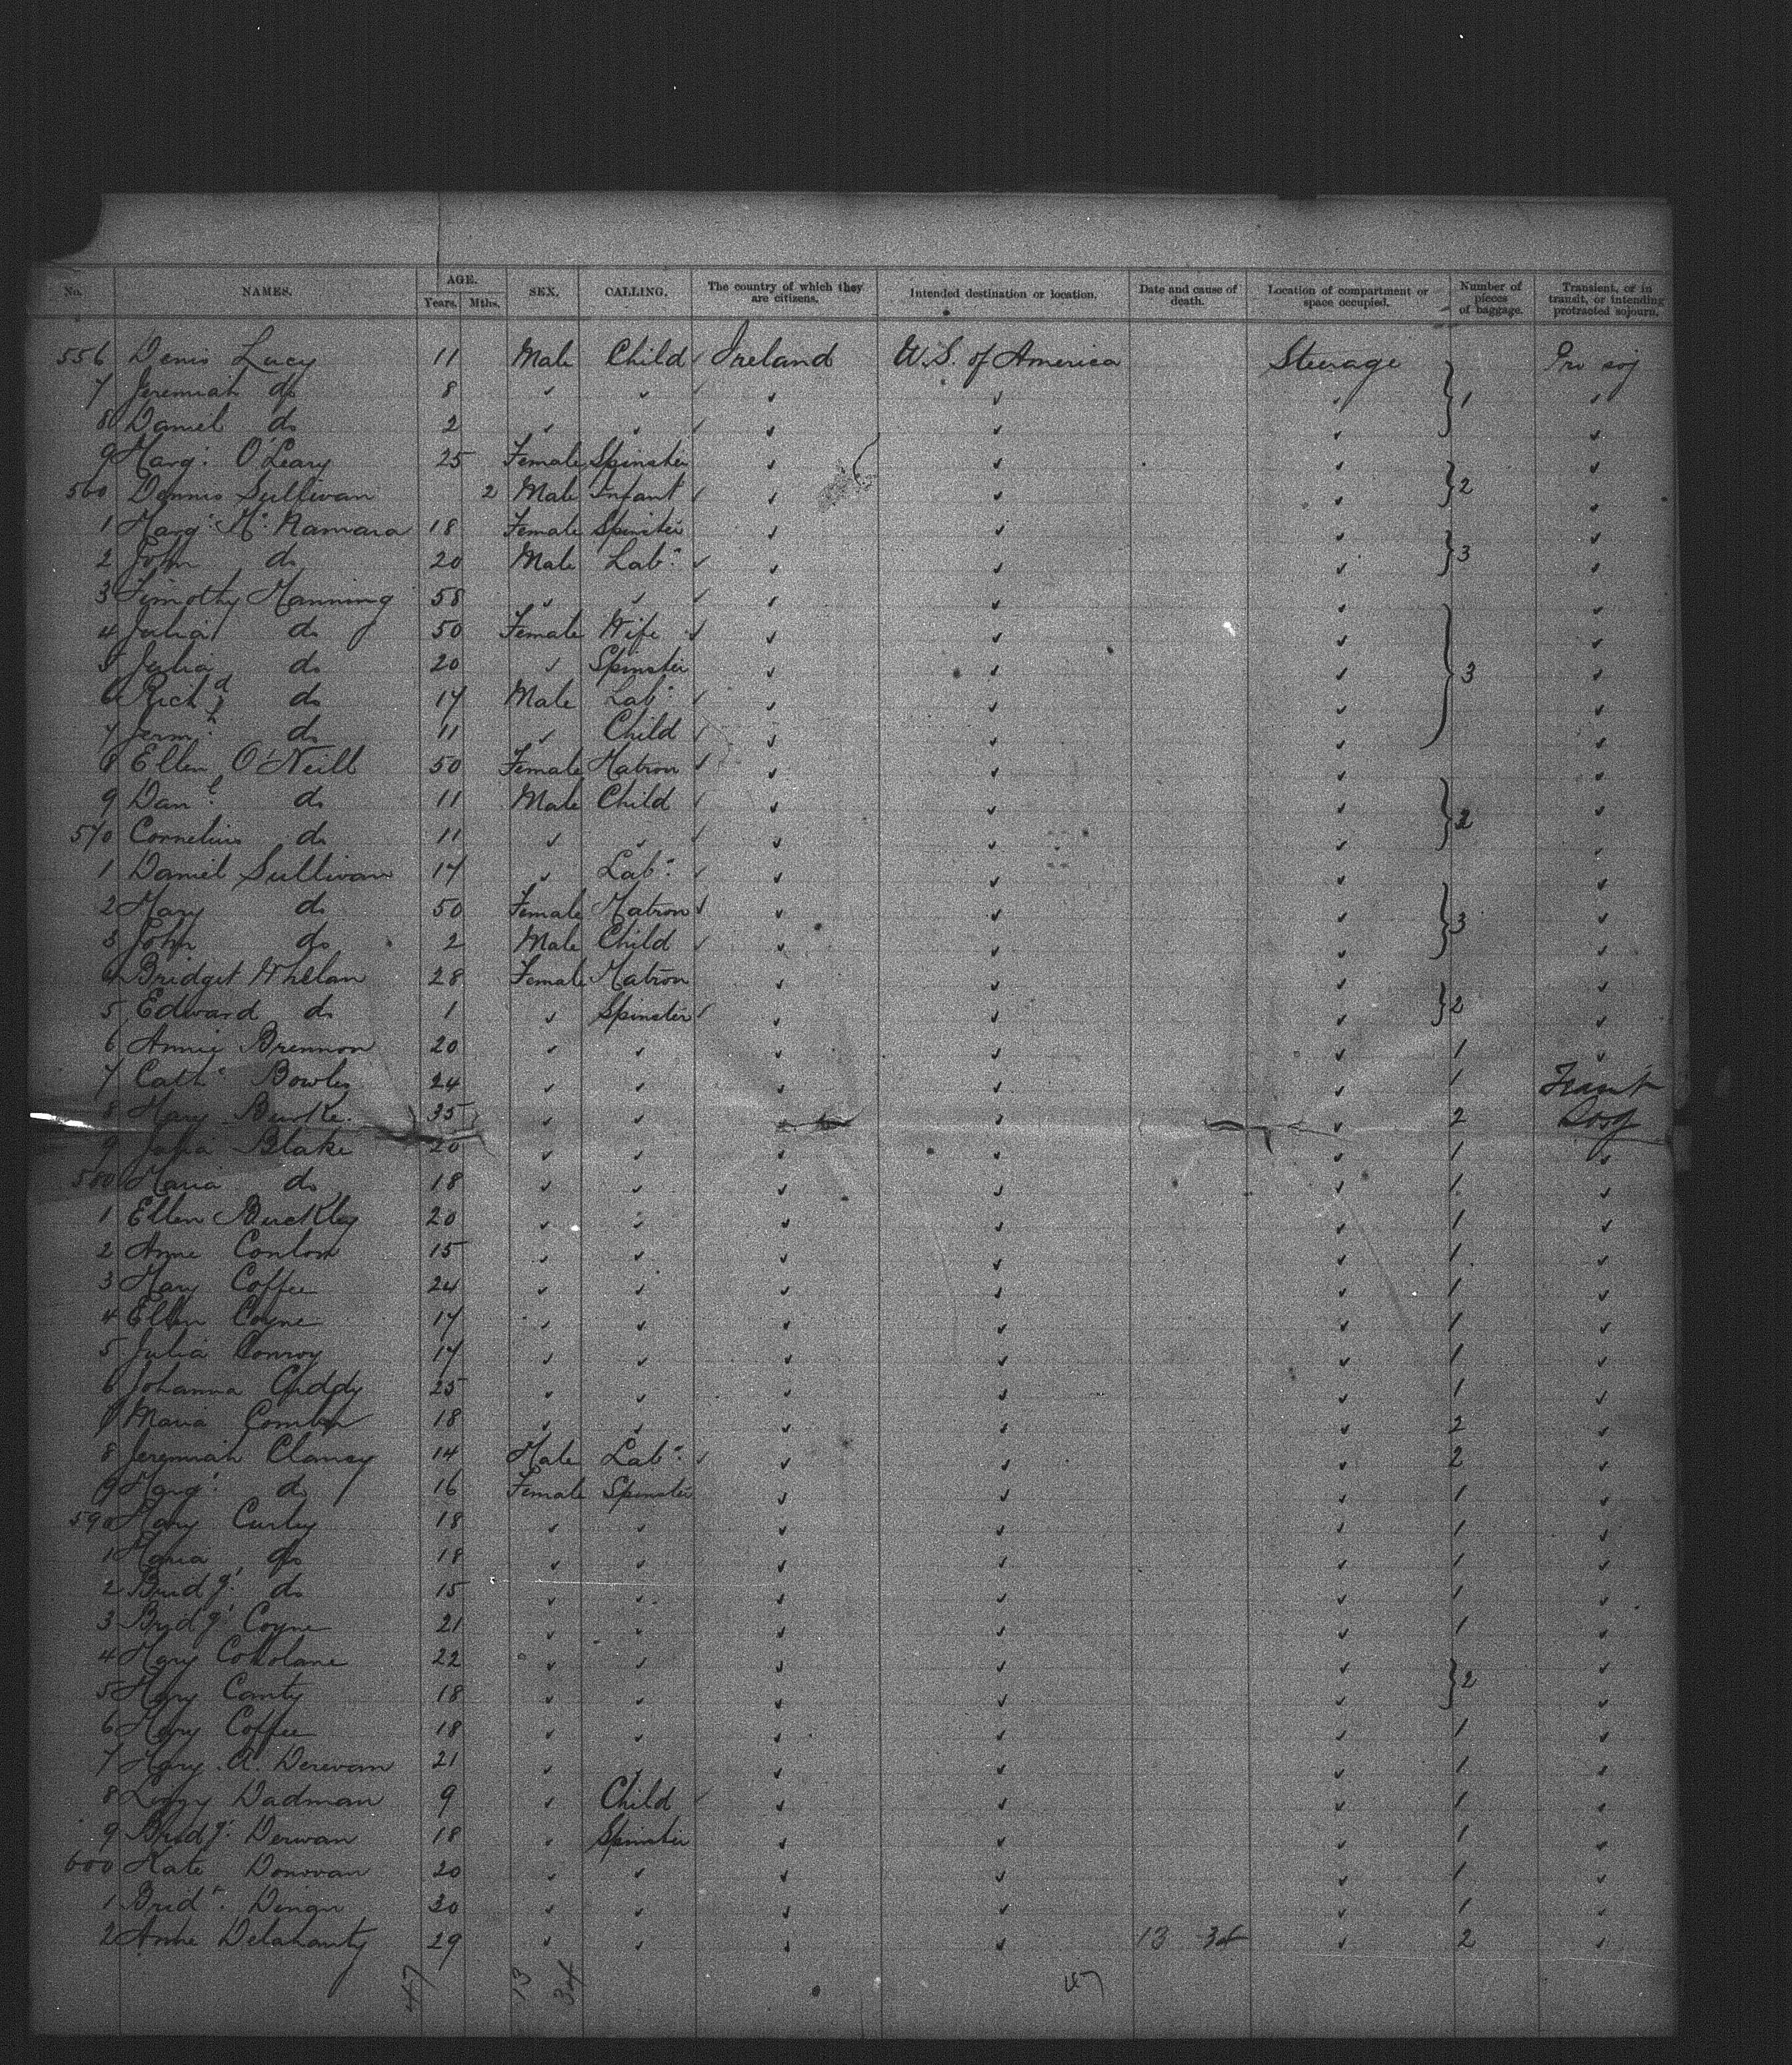 No. NAMES. AGE. Years. Mths. SEX. CALLING. The country of which they are citizens. Intended destination or location. Date and cause of death. Location of compartment or space occupied. Number of pieces of baggage. Transient, or in transit, or intending protracted sojourn.
556 Denis Lucy 11 Male Child Ireland U.S. of America Steerage Pro soj
7 Jeremiah do 8 1
8 Daniel do 2
9 Margt O'Leary 25 Female Spinster
560 Dennis Sullivan 2 Male Infant 2
1 Margt McNamara 18 Female Spinster
2 John do 20 Male Labr 3
3 Timothy Manning 58
4 Julia do 50 Female Wife
5 Julia do 20 Spinster 3
6 Richd do 17 Male Labr
7 Jermh do 11 Child
8 Ellen O'Neill 50 Female Matron
9 Danl do 11 Male Child 2
570 Cornelius do 11
1 Daniel Sullivan 17 Labr
2 Mary do 50 Female Matron 3
3 John do 2 Male Child
4 Bridget Whelan 28 Female Matron
5 Edward do 1 Spinster 2
6 Annie Brennon 20 1
7 Cath Bowles 24 1
8 Mary Burke 35 2
9 Julia Blake 20 1
580 Maria do 18 1
1 Ellen Buckley 20 1
2 Anne Conlon 15 1
3 Mary Coffee 24 1
4 Ellen Coyne 17 1
5 Julia Conroy 17 1
6 Johanna Cuddy 25 1
7 Maria 18 2
8 Jeremiah Clancy 14 Male Labr 2
9 Margt do 16 Female Spinster 1
590 Mary Curley 18 1
1 Maria do 18 1
2 Bridgt do 15 1
3 Bridgt Coyne 21 1
4 Mary 22
5 Mary 18 2
6 Mary Coffee 18 1
7 Mary A. Derevan 21 1
8 Lizzy Dadman 9 Child 1
9 Bridgt Derwan 18 Spinster 1
600 Kate Donovan 20 1
1 Bridt 30 1
2 Anne Delahanty 29 13 34 2
47 13 34 47